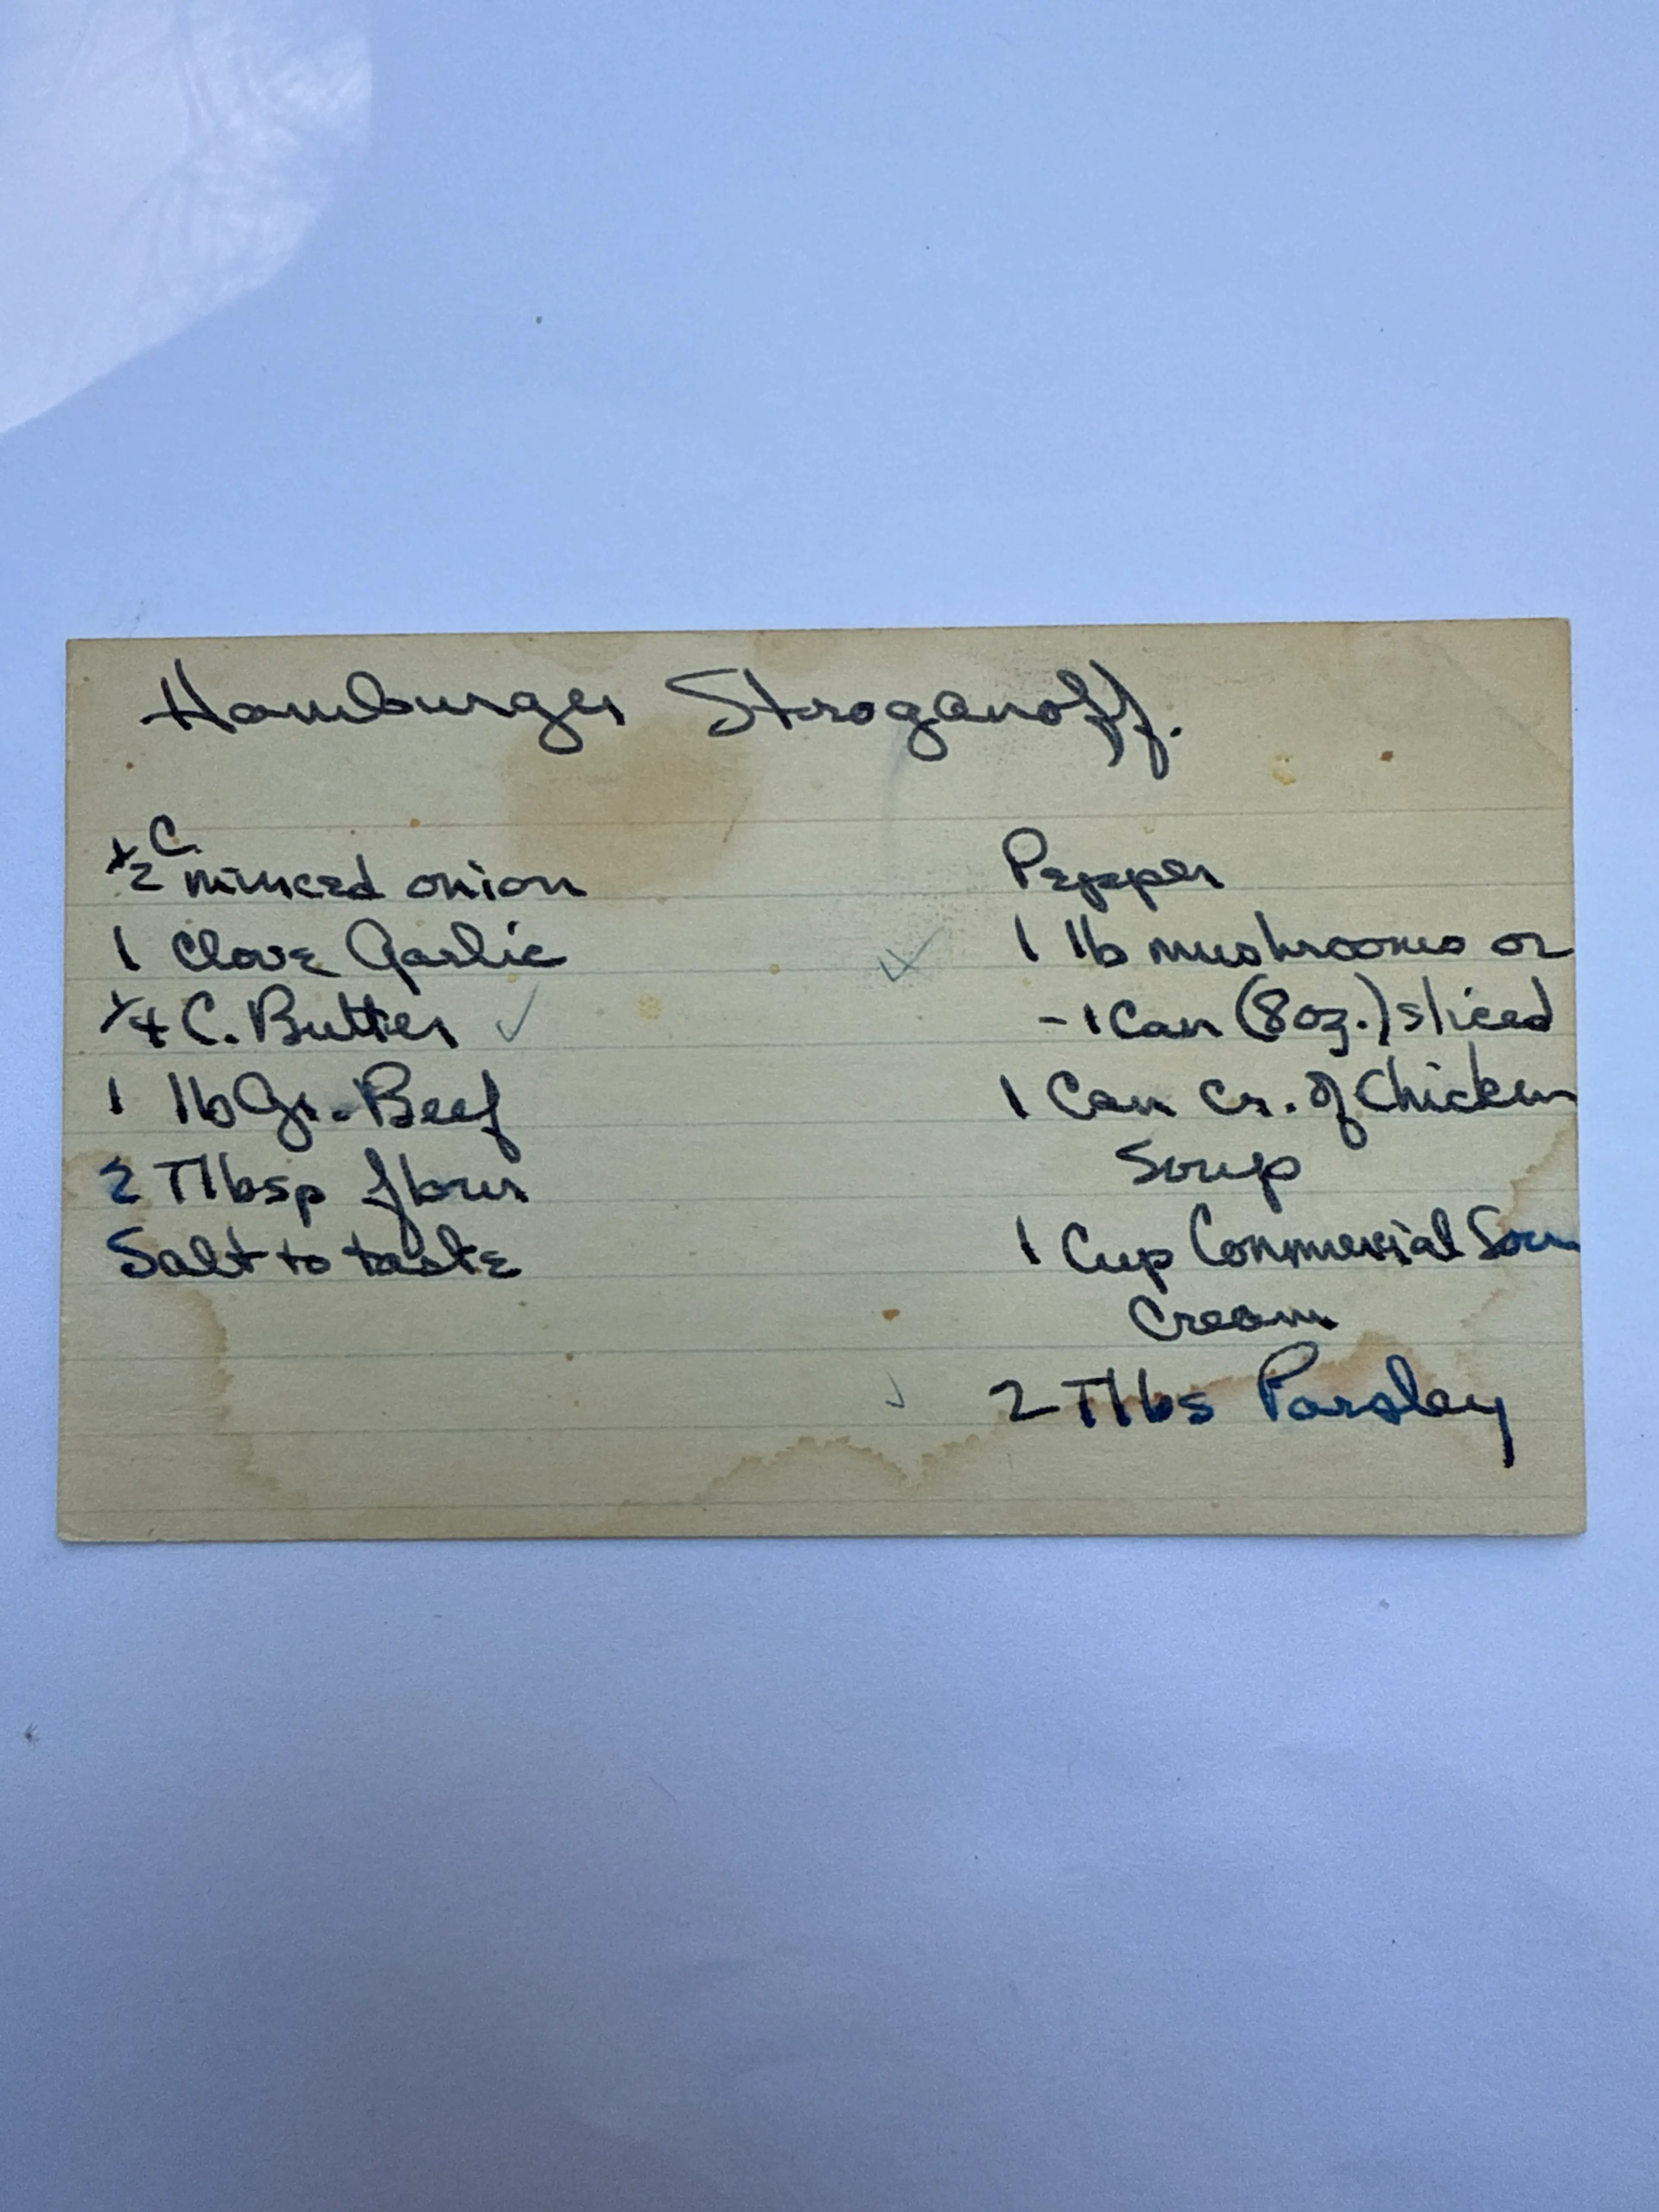 Hamburger Stroganoff.
½ C. minced onion
1 Clove Garlic
¼ C. Butter ✓
1 lb Gr. Beef
2 Tlbsp flour
Salt to taste
Pepper
✓ 1 lb mushrooms or
- 1 Can (8oz.) sliced
1 Can Cr. of Chicken
Soup
1 Cup Commercial Sour
Cream
✓ 2 Tlbs Parsley